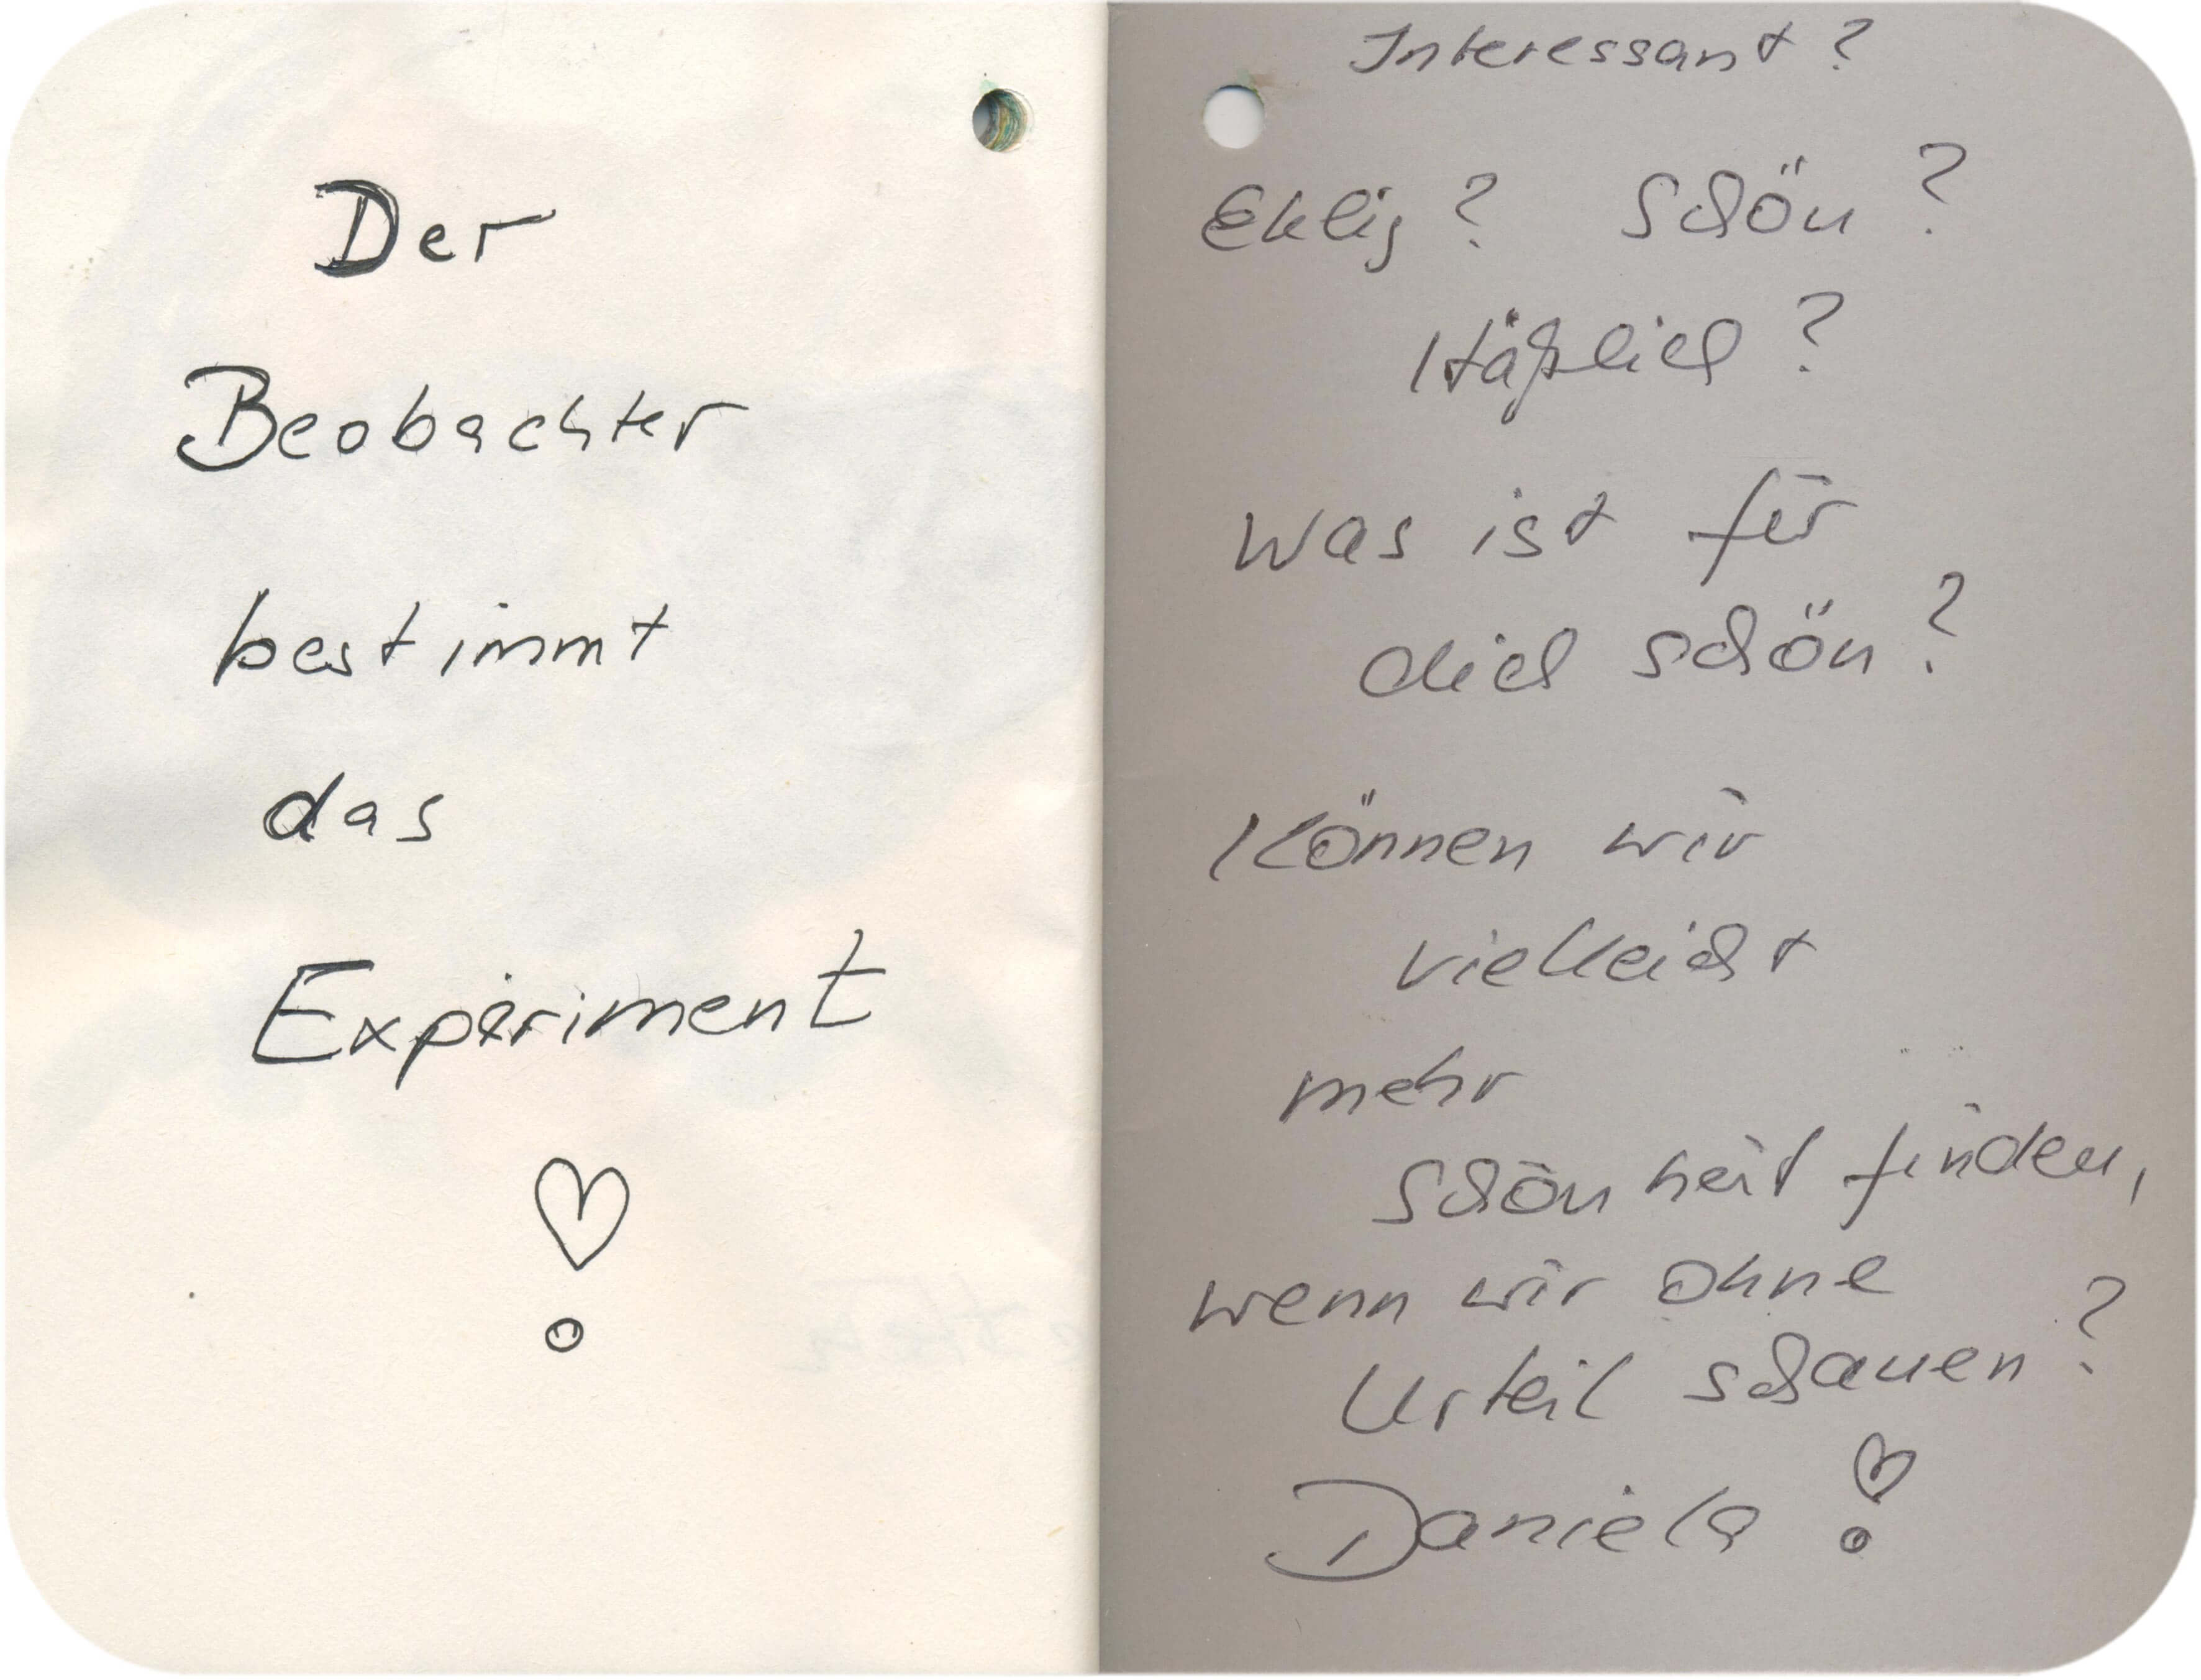 Der
Beobachter
bestimmt
das
Experiment
Interessant?
Eklig? Schön?
Häßlich?
Was ist für
dich schön?
Können wir
vielleicht
mehr
Schönheit finden,
wenn wir ohne
Urteil schauen?
Daniela